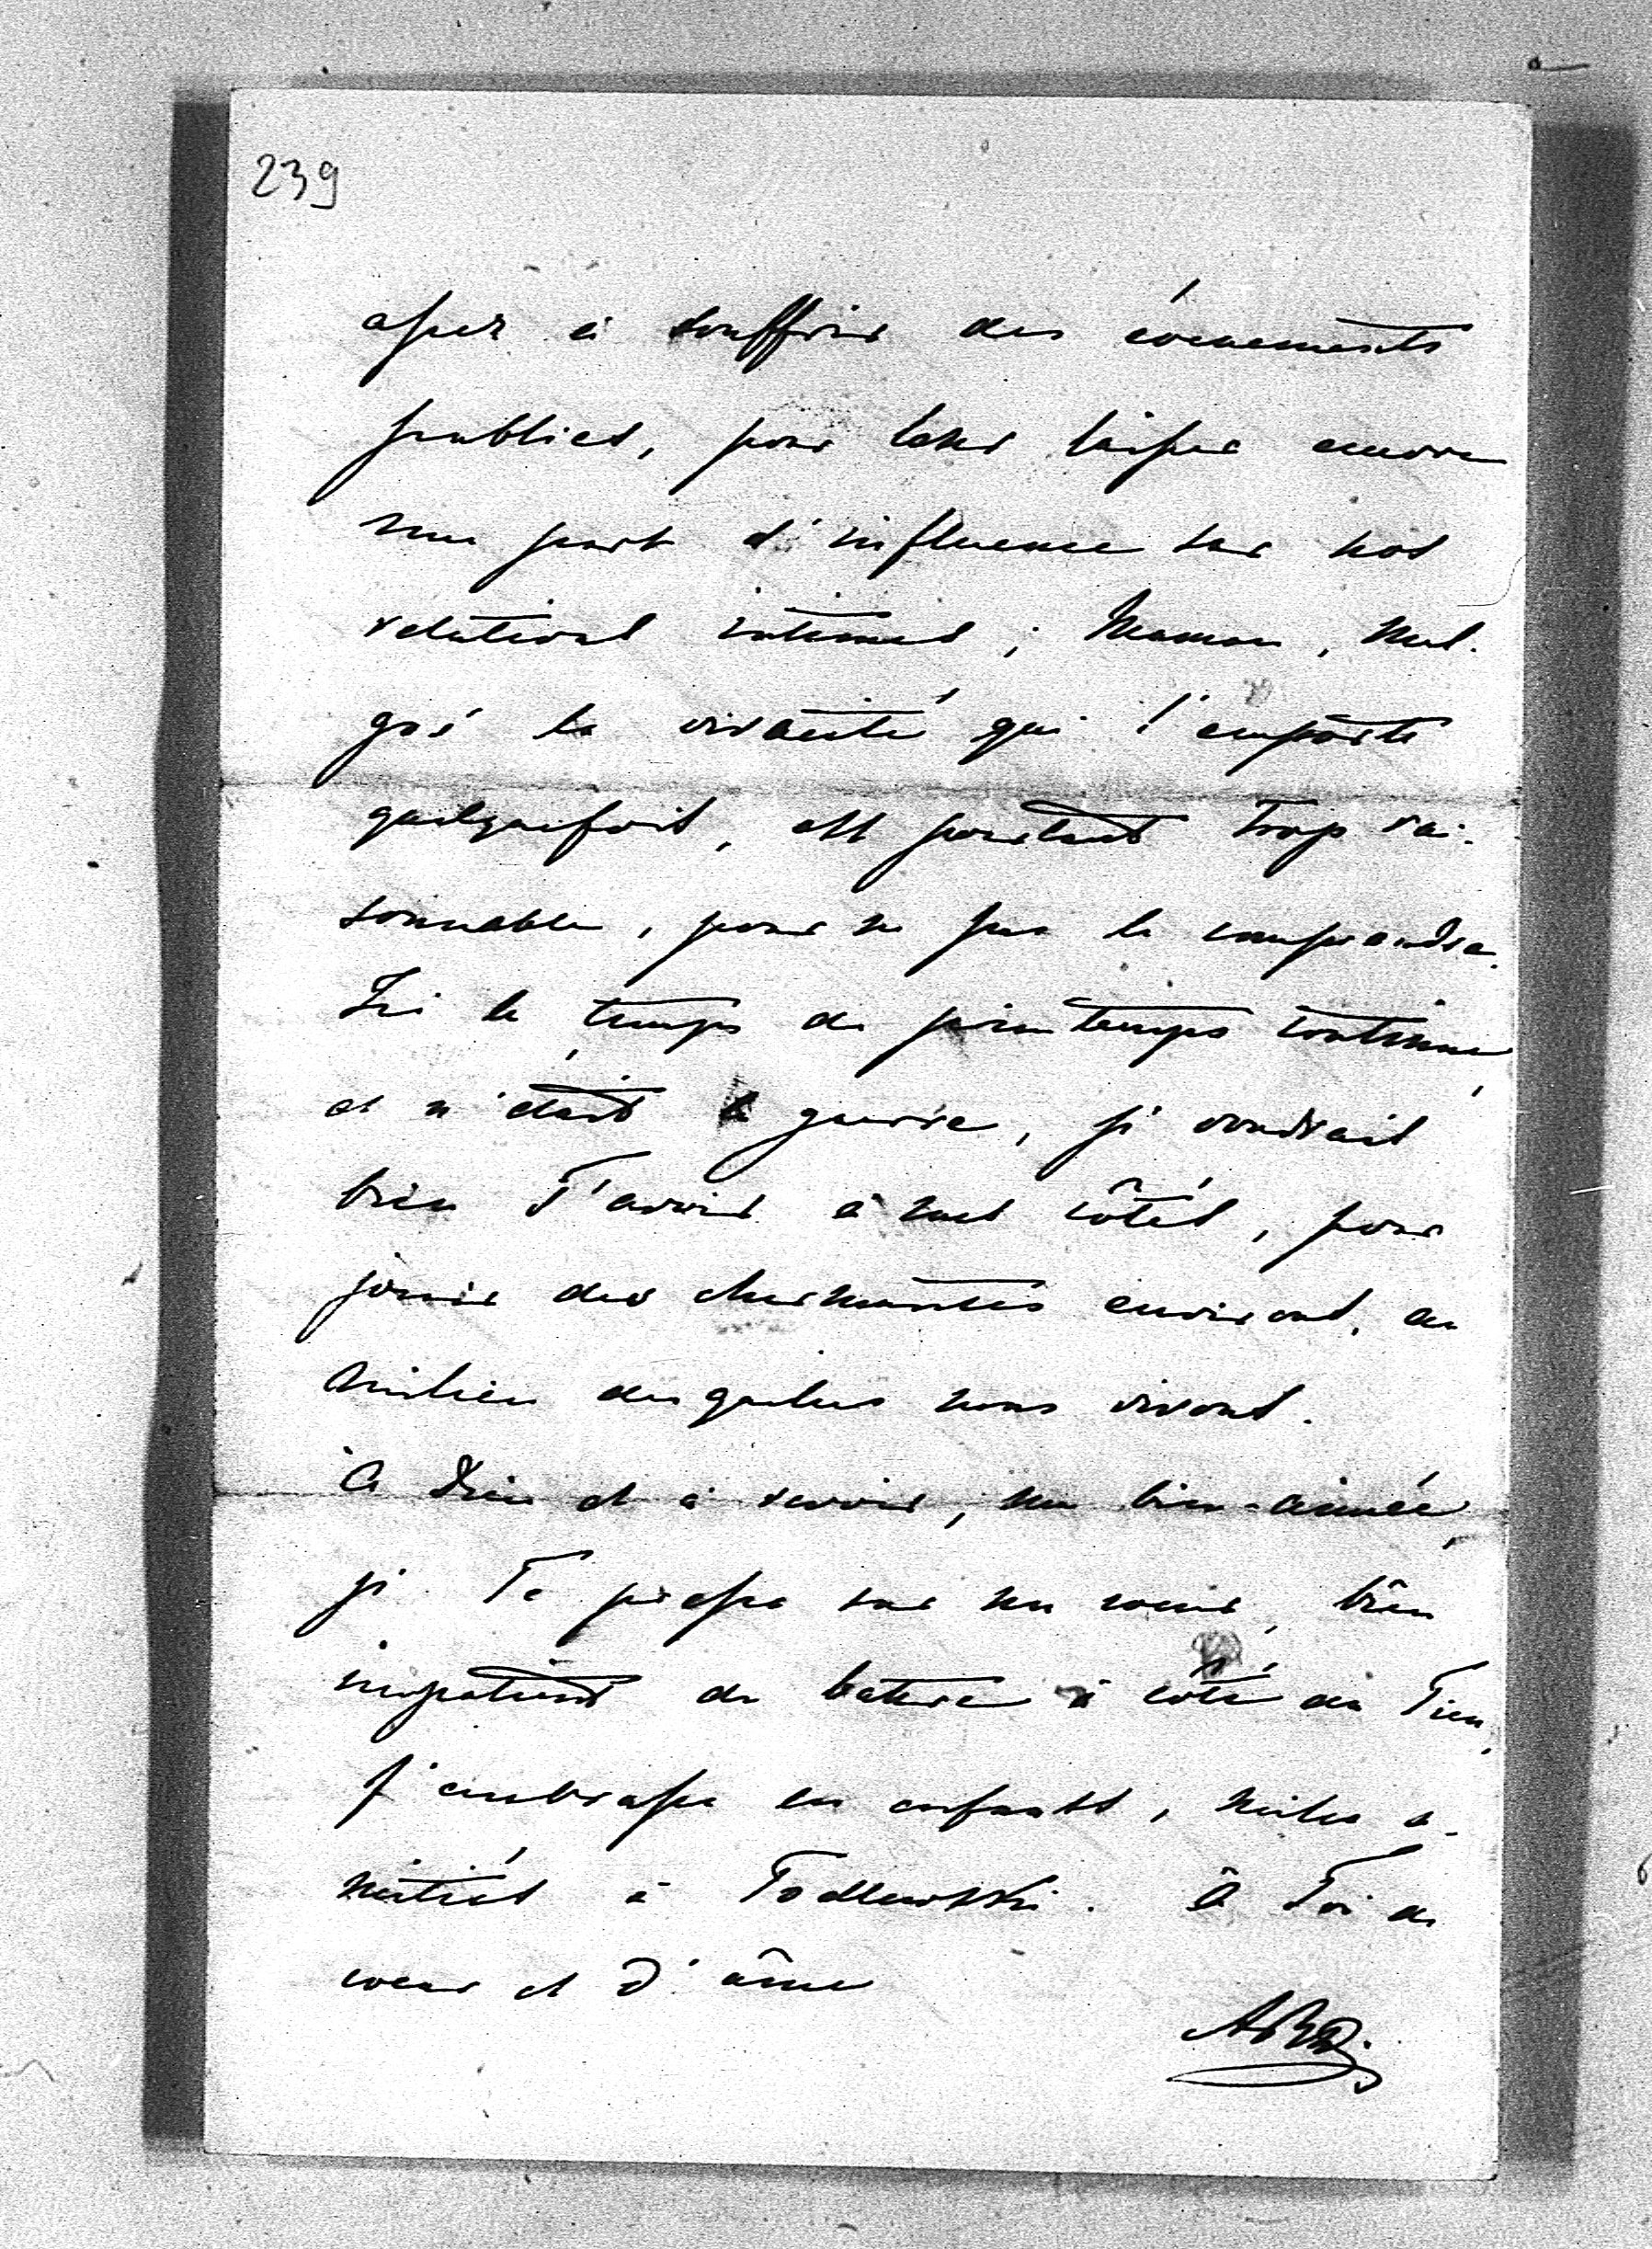 239
assez à souffrir des évenements
publics, pour leur laisser encore
une part d'influence sur nos
relations intimes; Maman, mal-
gré la vivacité qui l'emporte
quelquefois, est pourtant trop rai-
sonnable, pour ne pas le comprendre.
Ici le temps de printemps continue,
et n'était la guerre, je voudrais
bien T'avoir à mes côtés, pour
jouir des charmantes environs, au
milieu desquelles nous vivons.
À Dieu et à revoir, ma bien-aimée,
je Te presse sur mon coeur, bien
impatient de battre à côté du Tien,
J'embrasse les enfants, milles a-
mitiés à Todleufski. À Toi de
coeur et d'âme